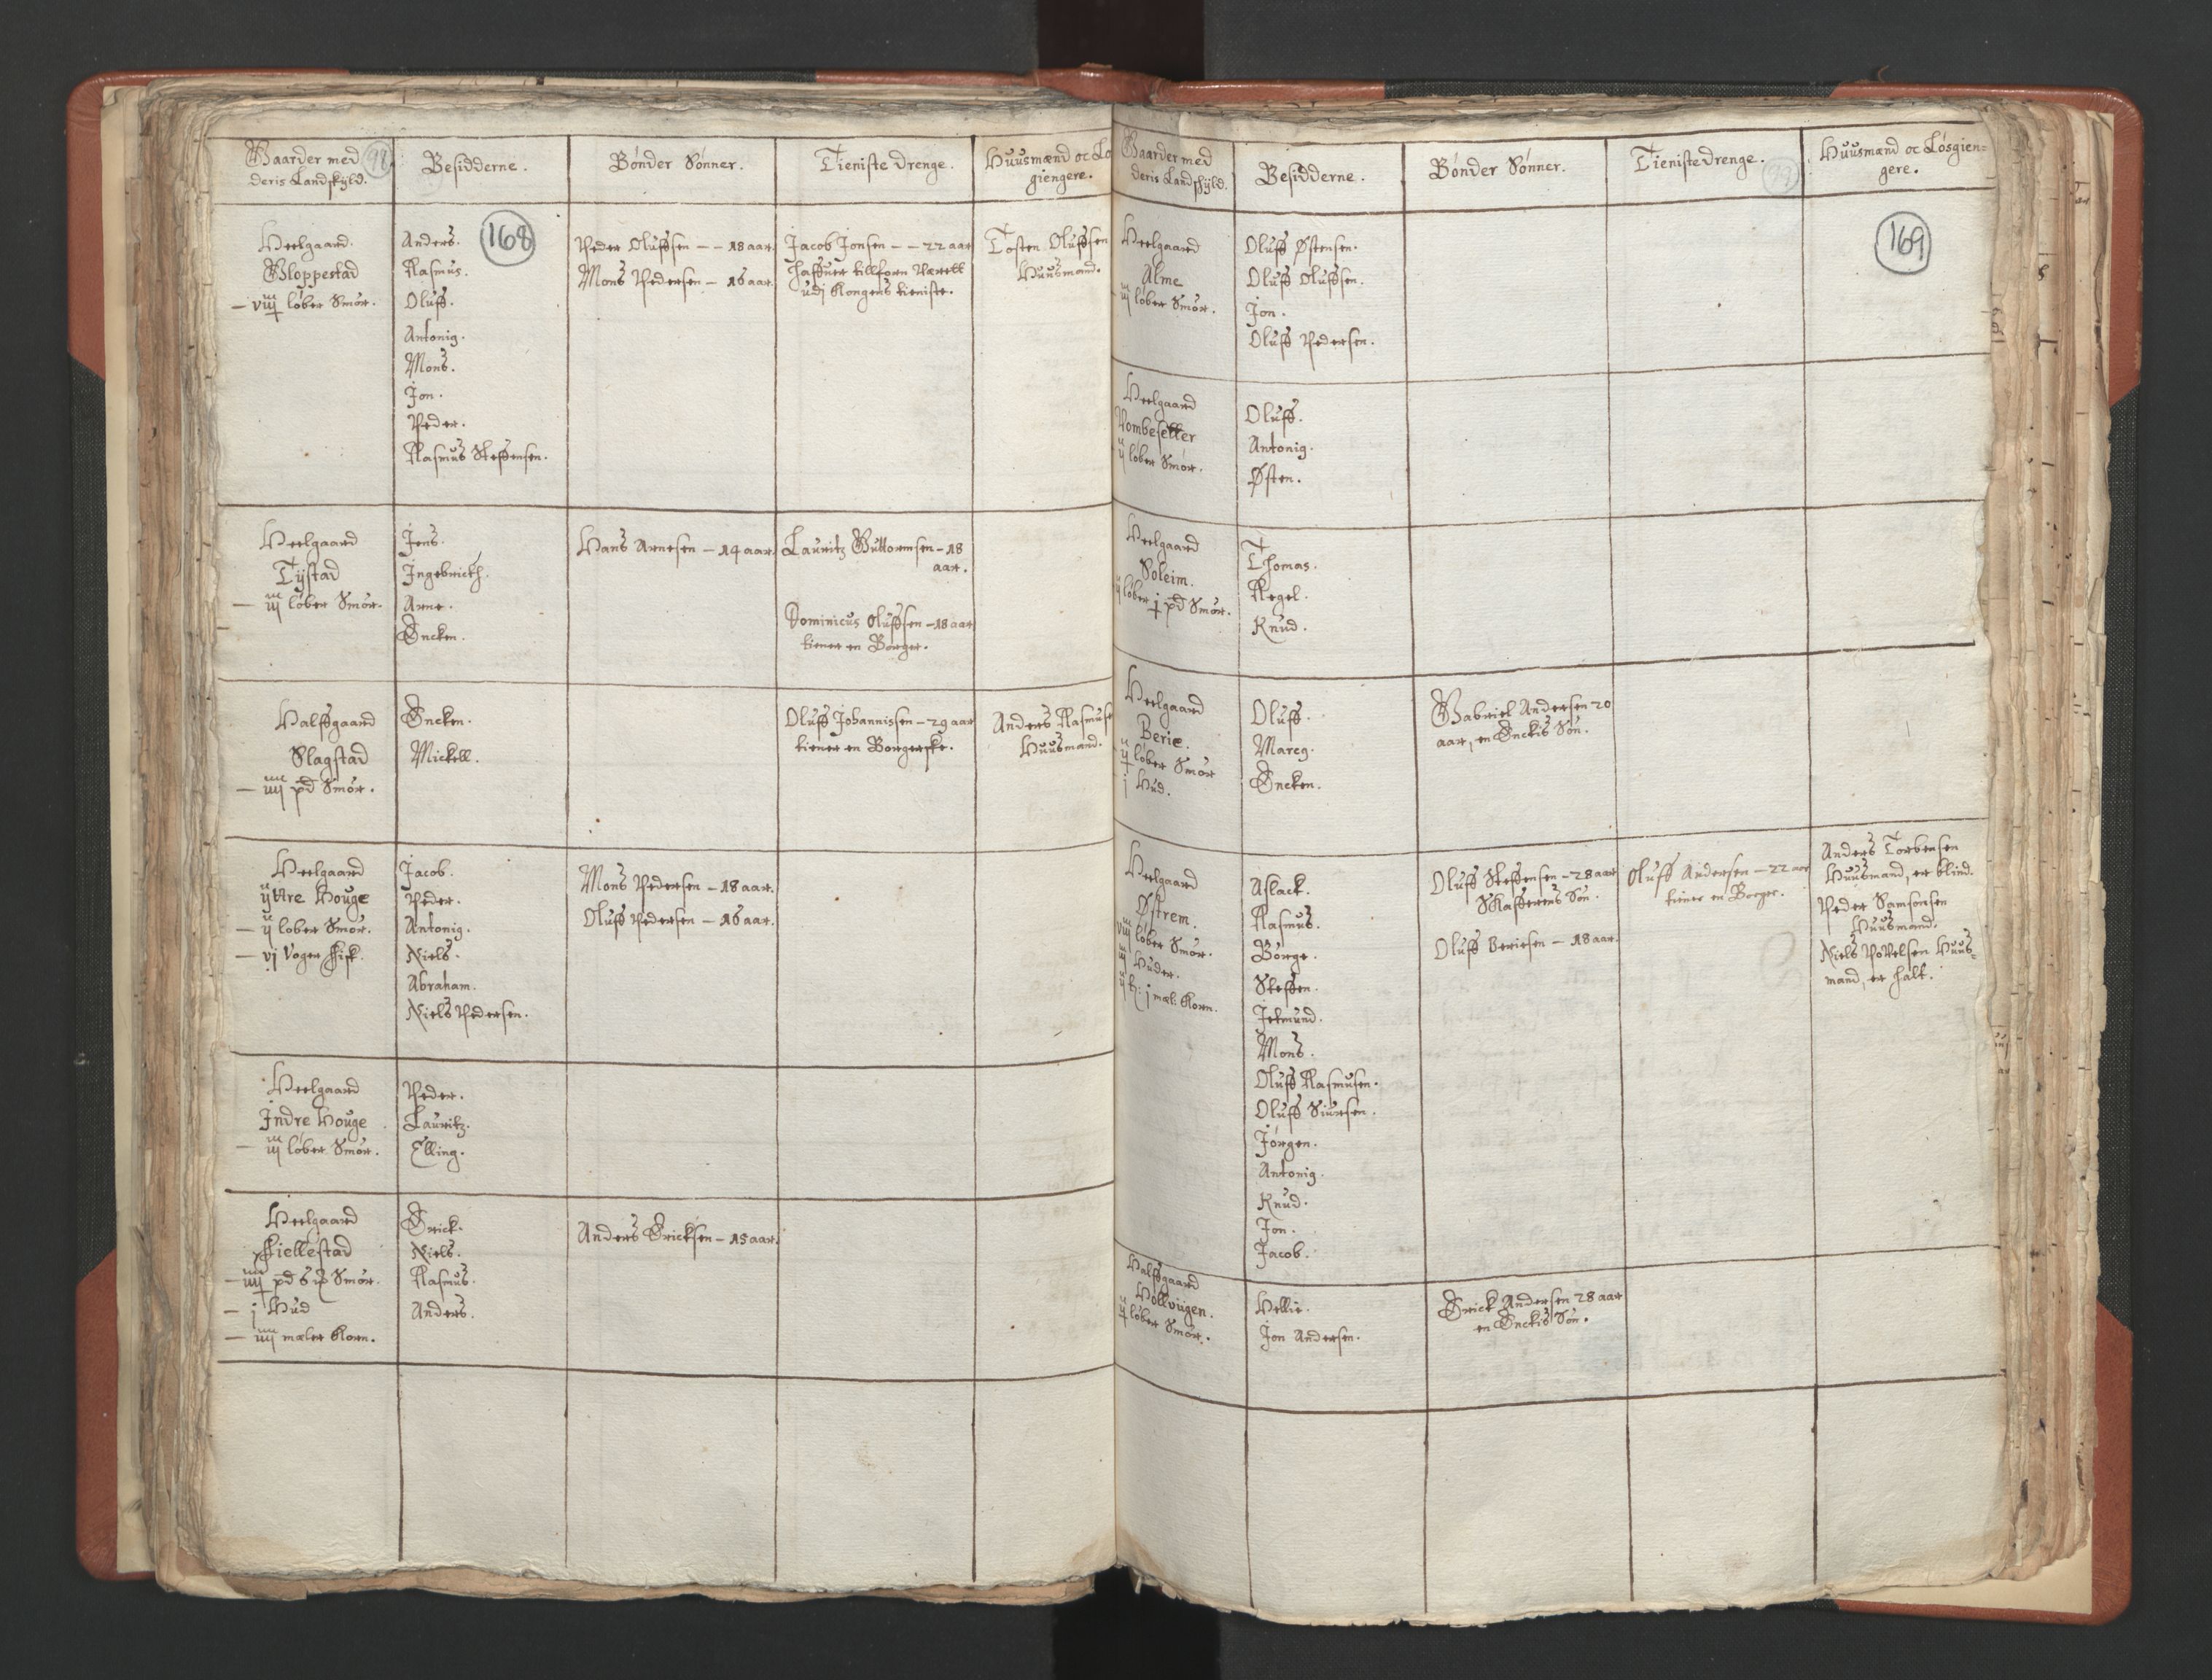 Gaarder med
deris Landskyld.
98
Besidderne.
Bønder Sønner.
Tieniste Drenge.
Huusmænd oc Lø
giengere.
168
Heelgaard.
Gloppestad
– viij løber Smør.
Anders.
Rasmus.
Oluff.
Antonig.
Mons.
Jon.
Peder.
Rasmus Steffensen.
Peder Oluffsen – – 18 aar.
Mons Pedersen – 16 aar.
Jacob Jonsen – – 22 aar
haffuer tillforn værett
udj Kongens tieniste.
Tosten Oluffsen
Huusmand.
Heelgaard
Tystad
– iij løber Smør.
Jens.
Ingebrickt.
Arne.
Encken.
Hans Arnesen – 14 aar.
Lauritz Guttormsen – 18
aar.
Dominicus Oluffsen – 18 aar
tiener en Borger.
Halffgaard
Slagstad
– iiij pd Smør.
Encken.
Mickell.
Oluff Johannissen – 29 aar
tiener en Borgerske.
Anders Rasmuse
Huusmand.
Heelgaard
yttre Houge
– ij løber Smør.
– vj Voger Fisk.
Jacob.
Peder.
Antonig.
Niels.
Abraham.
Niels Pedersen.
Mons Pedersen – 18 aar.
Oluff Pedersen – 16 aar.
Heelgaard
Indre Houge
– iij løber Smør.
Peder.
Lauritz.
Elling.
Heelgaard
Fiellestad
– iiij pd 6 Smør.
– j Hud
– iiij mæler Korn.
Erick.
Niels.
Rasmus.
Anders.
Anders Ericksen – 15 aar.
Gaarder med
deris Landskyld.
Besidderne.
Bønder Sønner.
Tieniste Drenge.
99
Huusmænd oc Løsgien=
gere.
169
Heelgaard
Alme
iij løber Smør.
Oluff Østensen.
Oluff Oluffsen.
Jon.
Oluff Pedersen.
Heelgaard
Vombesetter
ij løber Smør.
Oluff.
Antonig.
Østen.
Heelgaard
Soleim.
ij løber j pd Smør.
Thomas.
Regel.
Knud.
Heelgaard
Berie.
ij løber Smør
j Hud.
Oluff.
Marcg.
Encken.
Gabriel Andersen 20
aar, en Enckis Søn.
Heelgaard
Østrem.
viij løber Smør.
iij Huder.
ij t: j mæl: Korn.
Aslack.
Rasmus.
Børge.
Steffen.
Jetmund.
Mons.
Oluff Rasmusen.
Oluff Siursen.
Jørgen.
Antonig.
Knud.
Jon.
Jacob.
Oluff Steffensen – 28 aar
Skafferens Søn.
Oluff Beriesen – 18 aar.
Oluff Andersen – 22 aar
tiener en Borger.
Anders Torbensen
Huusmand, er blind.
Peder Samsonsen
Huusmand.
Niels Povelsen Huus=
mand, er halt.
Halffgaard
Hollvügen.
ij løber Smør.
Hellie.
Jon Andersen.
Erick Andersen 28 aar
en Enckis Søn.